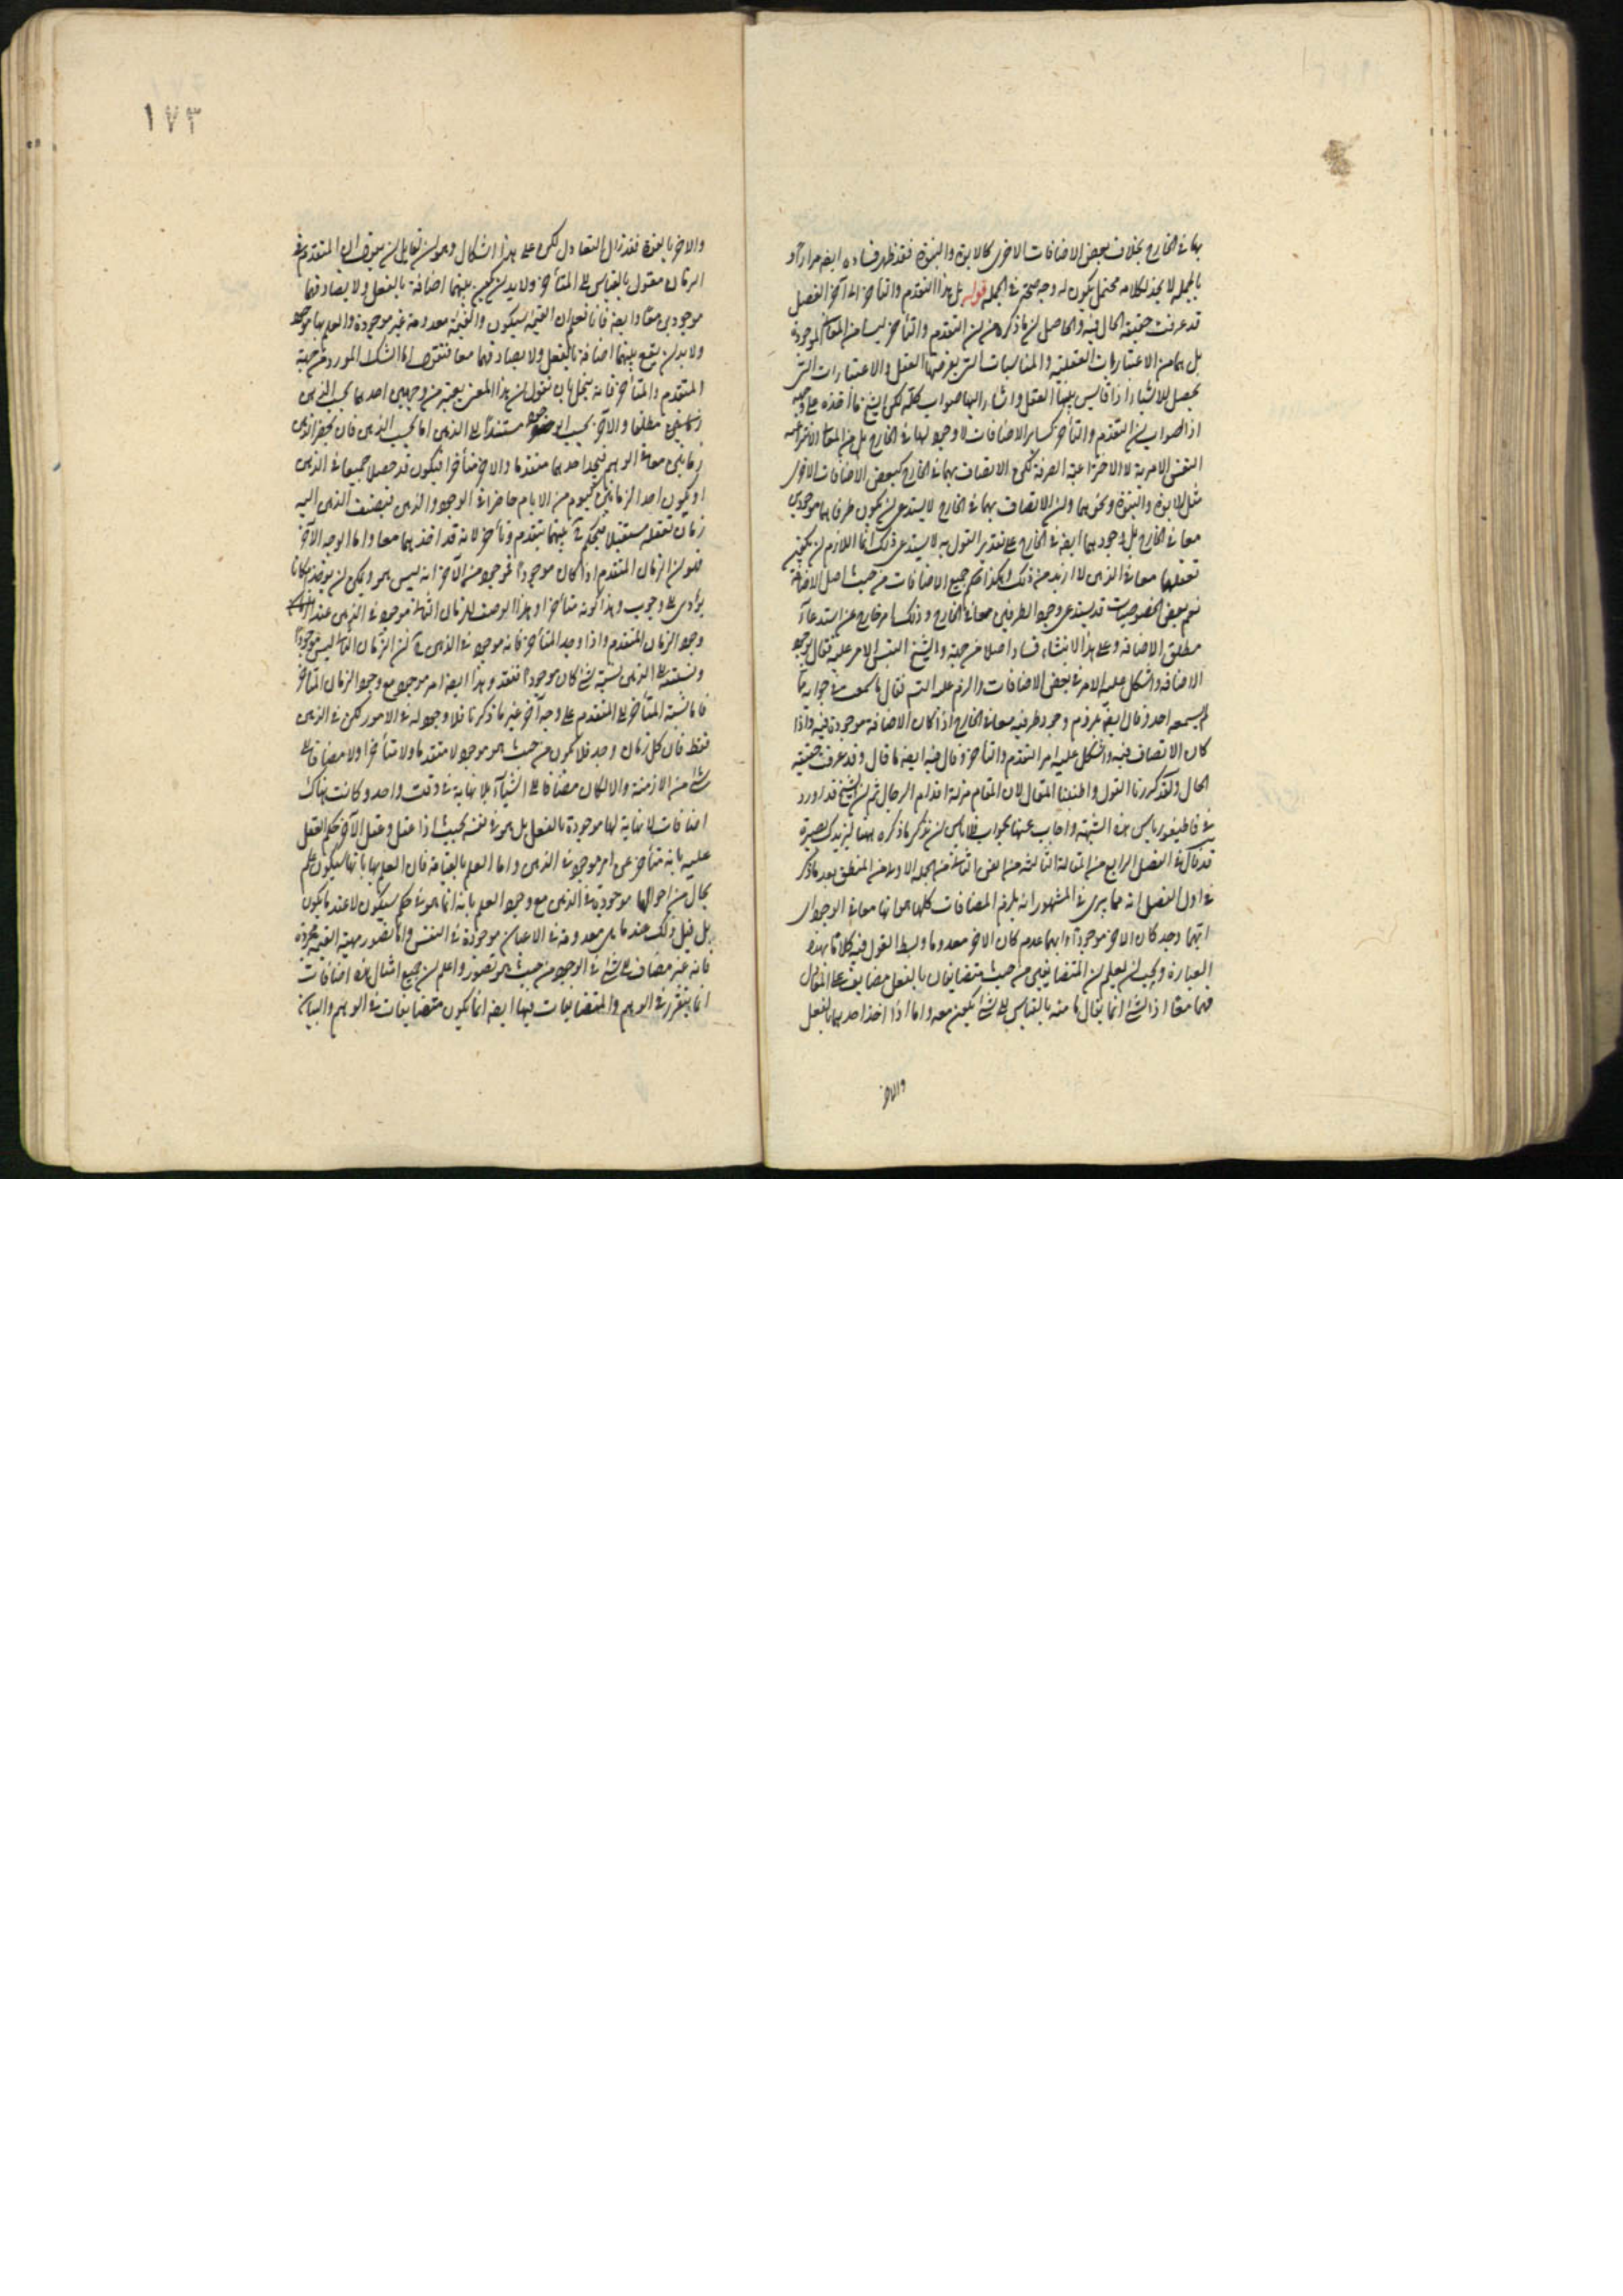 بها في الخارج بخلاف بعض الاضافات الاخرى كالابوة والبنوة فقد ظهر فساده ايضا مرارا و
بالجملة لا نجد لكلامه محتمل يكون له وجه صحة في الجملة قوله بل هذا التقدم والتأخر الى آخر الفصل
قد عرفت حقيقة الحال فيه والحاصل ان ما ذكره من ان التقدم والتأخر ليسا من المعاني الموجودة
بل هما من الاعتباريات العقلية والمناسبات التي يفرضها العقل والاعتبارات التي
يحصل للاشياء اذا قايس بينها العقل واشار اليها صواب كله لكن الشيخ ما أخذه على وجهه
اذ الصواب ان التقدم والتأخر كساير الاضافات لا وجود لها في الخارج بل من المعاني الانتزاعية
النفس الامرية لا الاختراعية الصرفة لكن الاتصاف بهما في الخارج كبعض الاضافات الاخرى
مثل الابوة والبنوة ونحوهما وان الاتصاف بهما في الخارج لا يستدعى ان يكون طرفاهما موجودين
معا في الخارج بل وجودهما ايضا في الخارج على تقدير القول به لا يستدعى ذلك انما اللازم ان يكون
تعقلهما معا في الذهن لا ازيد من ذلك وهكذا حكم جميع الاضافات من حيث اصل الاضافة
نعم بعض الخصوصيات قد يستدعى وجود الطرفين معا في الخارج وذلك امر خارج عن استدعاء
مطلق الاضافة وعلى هذا الانشاء فساد اصلا من جهة والشيخ التبس الامر عليه فقال بوجود
الاضافة واشكل عليه الامر في بعض الاضافات والزم عليه التسلسل فقال ما سمعت في جوابه ما
لم يسمعه احد وقال ايضا بلزوم وجود طرفيه معا في الخارج اذا كان الاضافة موجودة فيه واذا
كان الاتصاف فيه واشكل عليه امر التقدم والتأخر وقال فيه ايضا ما قال وقد عرفت حقيقة
الحال ولقد كررنا القول واطنبنا المقال لان المقام مزلة اقدام الرجال ثم ان الشيخ قد اورد
في قاطيغورياس هذه الشبهة واجاب عنها بجواب فلا بأس ان نذكر ما ذكره هيهنا ليزيدك بصيرة
قد قال في الفصل الرابع من المقالة الثالثة من الفن الثاني من الجملة الاولى من المنطق بعد ما ذكر
في اول الفصل انه مما يرى في المشهور انه يلزم المضافات كلها انها معا في الوجود اى
ايهما وجد كان الاخر موجودا وايهما عدم كان الاخر معدوما وبسط القول فيه كلاما بهذه
العبارة ويجب ان يعلم ان المتضايفين من حيث متضايفان بالفعل مضايف على التعادل
فهما معا اذ الشئ انما يقال ماهيته بالقياس الى شئ يكون معه واما اذا اخذ احدهما بالفعل
والاخر
١٧٣
والاخر بالقوة فقد زال التعادل لكن على هذا اشكال وهو ان لقايل ان يقول ان المتقدم في
الزمان مقول بالقياس الى المتأخر ولابد ان يكون بينهما اضافة بالفعل ولا يصادفهما
موجودين معا وايضا فانا نعلم ان القيمة سيكون والقيمة معدومة غير موجودة والعلم بها موجود
ولابد ان يقع بينهما اضافة بالفعل ولا يصادفهما معا فنقول اما الشك المورد من جهة
المتقدم والمتأخر فانه ينحل بان نقول ان هذا المعنى يعتبر من وجهين احدهما بحسب الذهن
مطلقا والآخر بحسب الوجود مستندا الى الذهن اما بحسب الذهن فان يحضر الذهن
زمانين معا في الوهم فيجد احدهما متقدما والاخر متأخرا فيكون قد حصل جميعا في الذهن
او يكون احد الزمانين كيوم من الايام حاضرا في الوجود والذهن فيضيف الذهن اليه
زمانا تعقله مستقبلا فيحكم بينهما بتقدم وتأخر لانه قد اخذهما معا واما الوجه الآخر
فلان الزمان المتقدم اذا كان موجودا فموجود من الآخر انه ليس هو ويمكن ان يوجد امكانا
يؤدى الى وجوب وهذا كونه متأخرا وهذا الوصف للزمان الثاني موجود في الذهن عند
وجود الزمان المتقدم واذا وجد المتأخر فانه موجود في الذهن ان الزمان الثاني ليس موجودا
ونسبته الى الذهن نسبة شئ كان موجودا ففقد وهذا ايضا امر موجود مع وجود الزمان المتأخر
فاما نسبة المتأخر الى المتقدم على وجه آخر غير ما ذكرنا فلا وجود له في الامور لكن في الذهن
فقط فان كل زمان وجد فلا يكون من حيث هو موجود لا متقدما ولا متأخرا ولا مضافا الى
شئ من الازمنة والا لكان مضافا الى اشياء بلا نهاية في وقت واحد وكانت هناك
اضافات لا نهاية لها موجودة بالفعل بل هو في نفسه بحيث اذا عقل وعقل الآخر حكم العقل
عليه بانه متأخر عن امر موجود في الذهن واما العلم بالقيامة فان العلم بها بانها سيكون علم
بحال من احوالها موجودة في الذهن مع وجود العلم بانه انما هو في حكم سيكون لا عند ما يكون
بل قبل ذلك عند ما هى معدومة في الاعيان موجودة في النفس واما تصور مهية القيمة مجردة
فانه غير مضاف الى شئ في الوجود من حيث هو تصور واعلم ان جميع امثال هذه اضافات
انما يتقرر في الوهم والمتضايفات فيها ايضا انما يكون متضايفات في الوهم والبيان